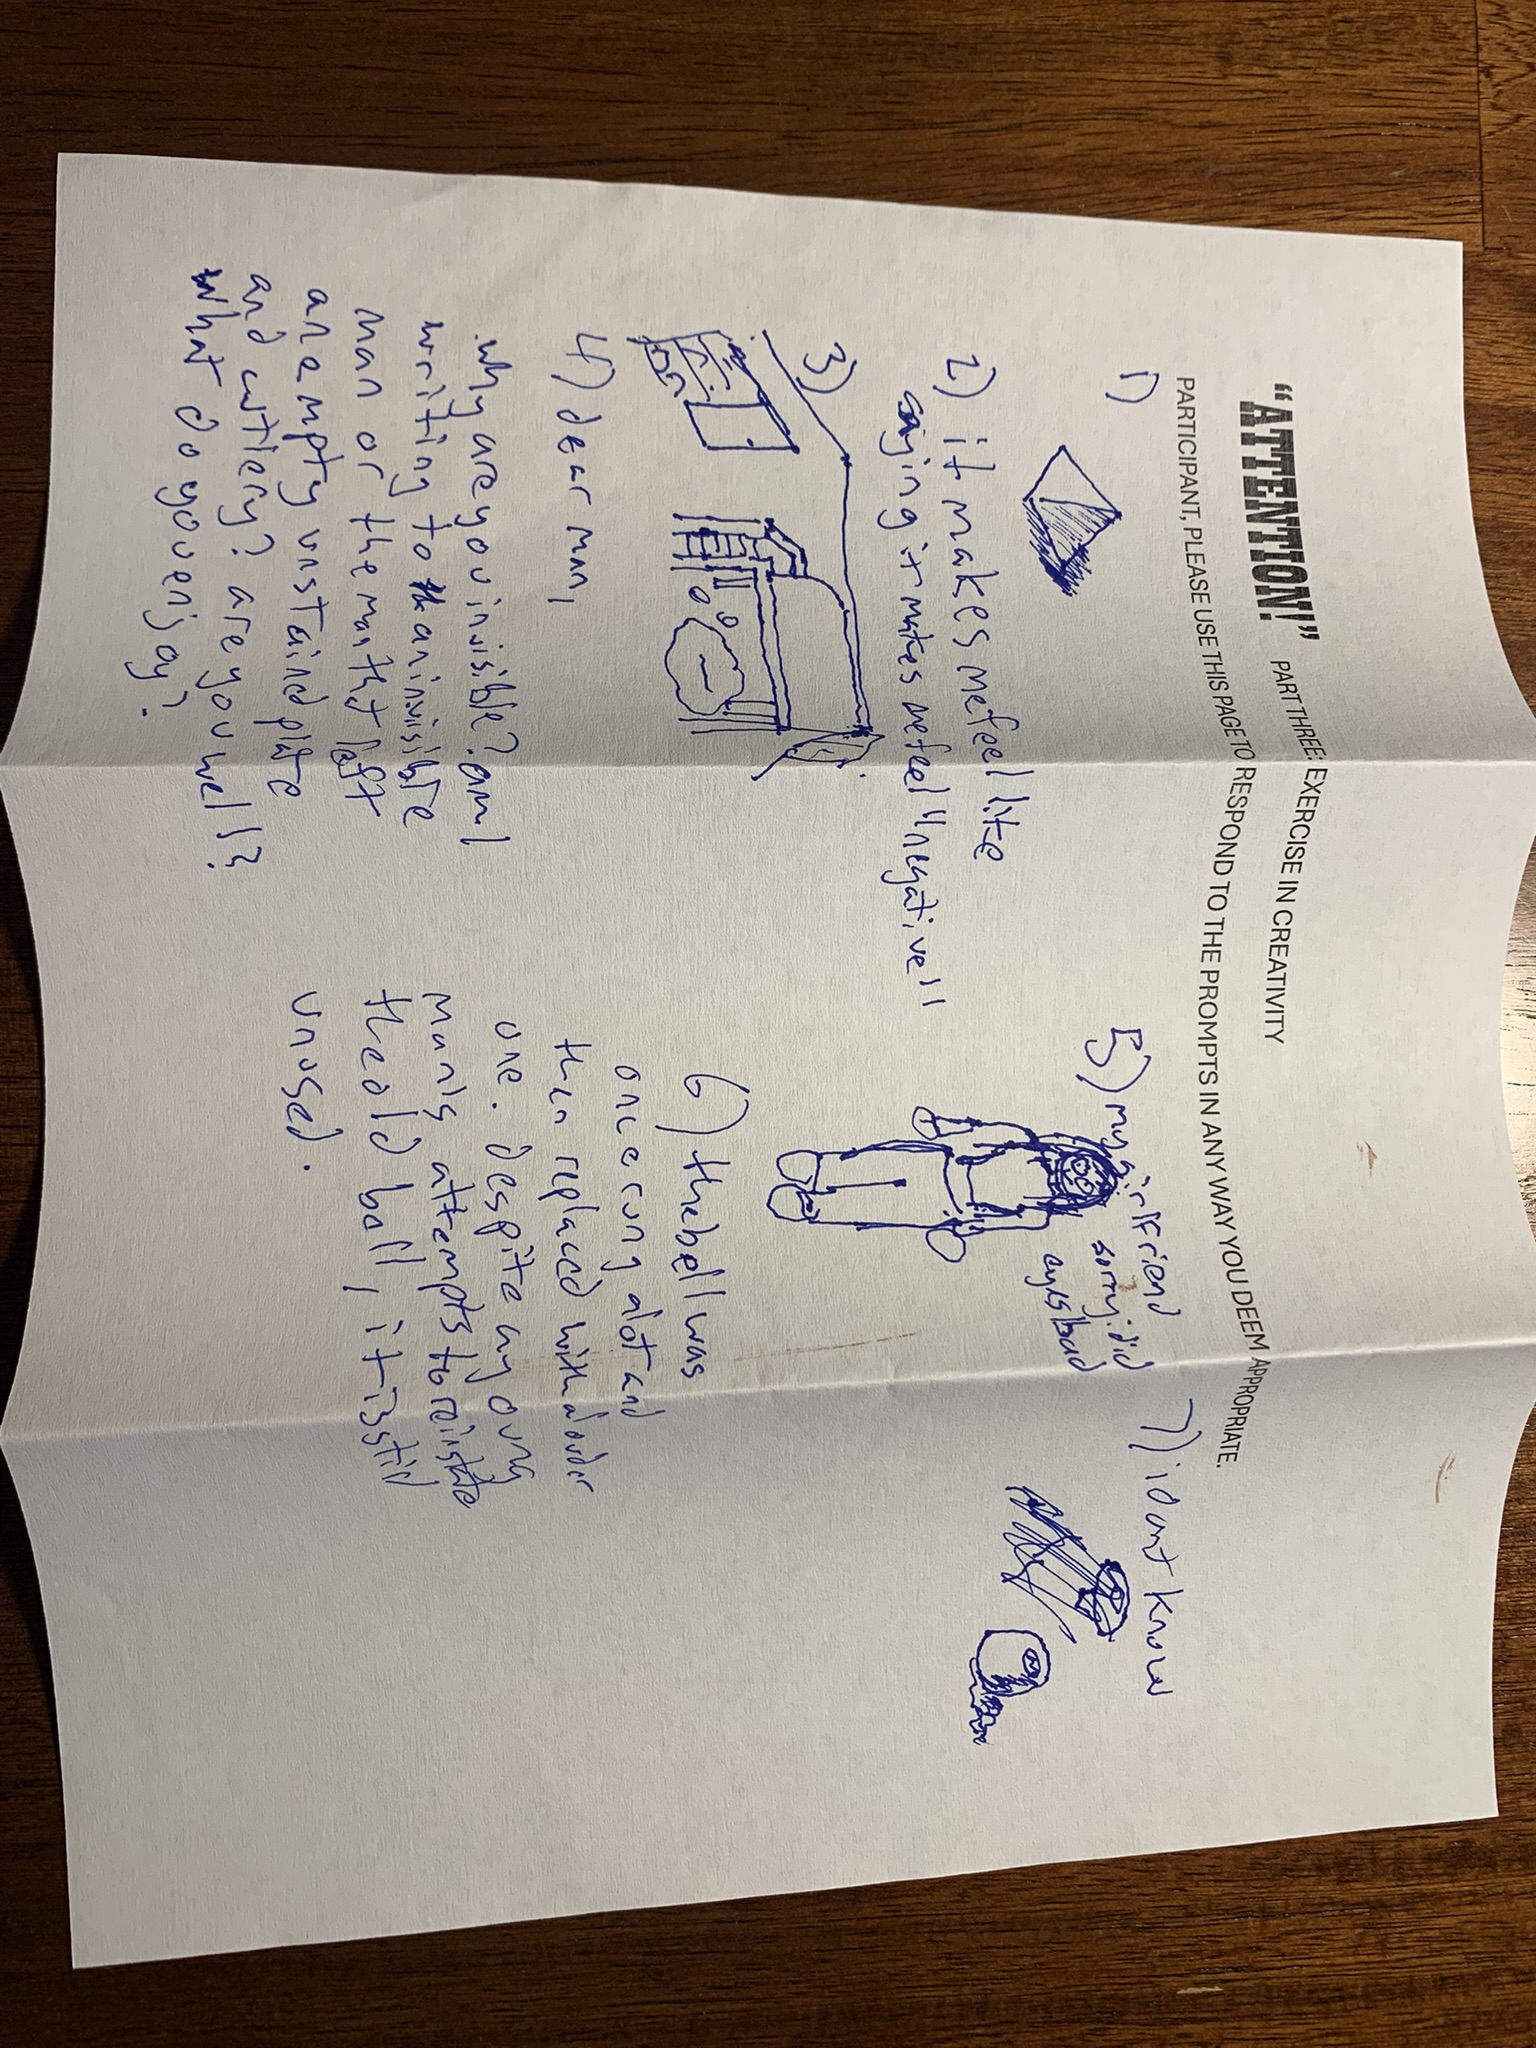 “ATTENTION!” PART THREE: EXERCISE IN CREATIVITY
PARTICIPANT, PLEASE USE THIS PAGE TO RESPOND TO THE PROMPTS IN ANY WAY YOU DEEM APPROPRIATE.
1)
2) it makes me feel like
saying it makes me feel "negative"
3)
4) dear man,
why are you invisible? am I
writing to an invisible
man or the man that left
an empty unstained plate
and cutlery? are you well?
What do you enjoy?
5) my girlfriend
sorry i did
eyes bad
6) the bell was
once rung alot and
then replaced with a louder
one. despite a young
man's attempts to reinstate
the old bell, it is still
unused.
7) i dont know